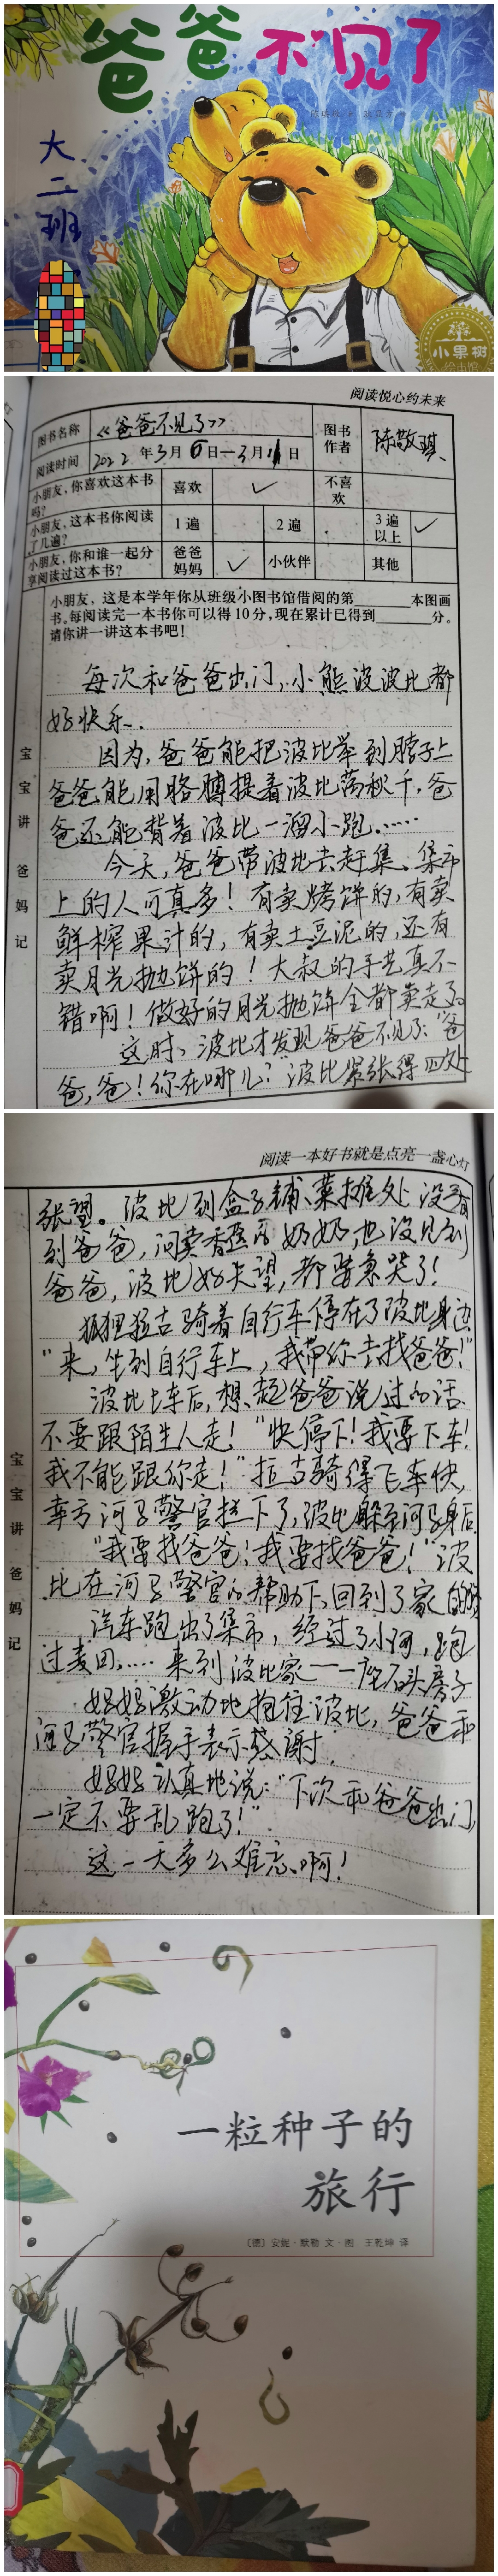 爸爸不见了
大二班
小果树
阅读悦心约未来
图书名称
《爸爸不见了》
图书作者
陈敬琪
阅读时间
2022年3月6日—3月11日
小朋友,你喜欢这本书吗?
喜欢
✓
不喜欢
小朋友,这本书你阅读了几遍?
1遍
2遍
3遍以上
✓
小朋友,你和谁一起分享阅读过这本书?
爸爸妈妈
✓
小伙伴
其他
小朋友,这是本学年你从班级小图书馆借阅的第______本图画
书。每阅读完一本书你可以得10分,现在累计已得到______分。
请你讲一讲这本书吧!
宝宝讲 爸妈记
每次和爸爸出门,小熊波波比都
好快乐。
因为,爸爸能把波比举到脖子上
爸爸能用胳膊提着波比荡秋千,爸
爸还能背着波比一溜小跑……
今天,爸爸带波比去赶集、集市
上的人可真多!有卖烤饼的,有卖
鲜榨果汁的,有卖土豆泥的,还有
卖月光抛饼的!大叔的手艺真不
错啊!做好的月光抛饼全都卖走了。
这时,波比才发现爸爸不见了:“爸
爸,爸!你在哪儿?”波比紧张得四处
阅读一本好书就是点亮一盏心灯
宝宝讲 爸妈记
张望。波比到盒子铺、菜摊处没看
到爸爸,问卖香蕉的奶奶,也没见到
爸爸,波比好失望,都要急哭了!
狐狸拉古骑着自行车停在了波比身边
“来,坐到自行车上,我带你去找爸爸!”
波比上车后,想起爸爸说过的话、
不要跟陌生人走!“快停下!我要下车!
我不能跟你走!”拉古骑得飞车快,
幸亏河马警官拦下了,波比躲在河马身后
“我要找爸爸!我要找爸爸!”波
比在河马警官的帮助下,回到了家的路
汽车跑出了集市,经过了小河,跑
过麦田,……来到波比家——一座石头房子
妈妈激动地抱住波比,爸爸和
河马警官握手表示感谢.
妈妈认真地说:“下次和爸爸出门,
一定不要乱跑了!”
这一天多么难忘啊!
一粒种子的
旅行
〔德〕安妮·默勒 文·图 王乾坤 译